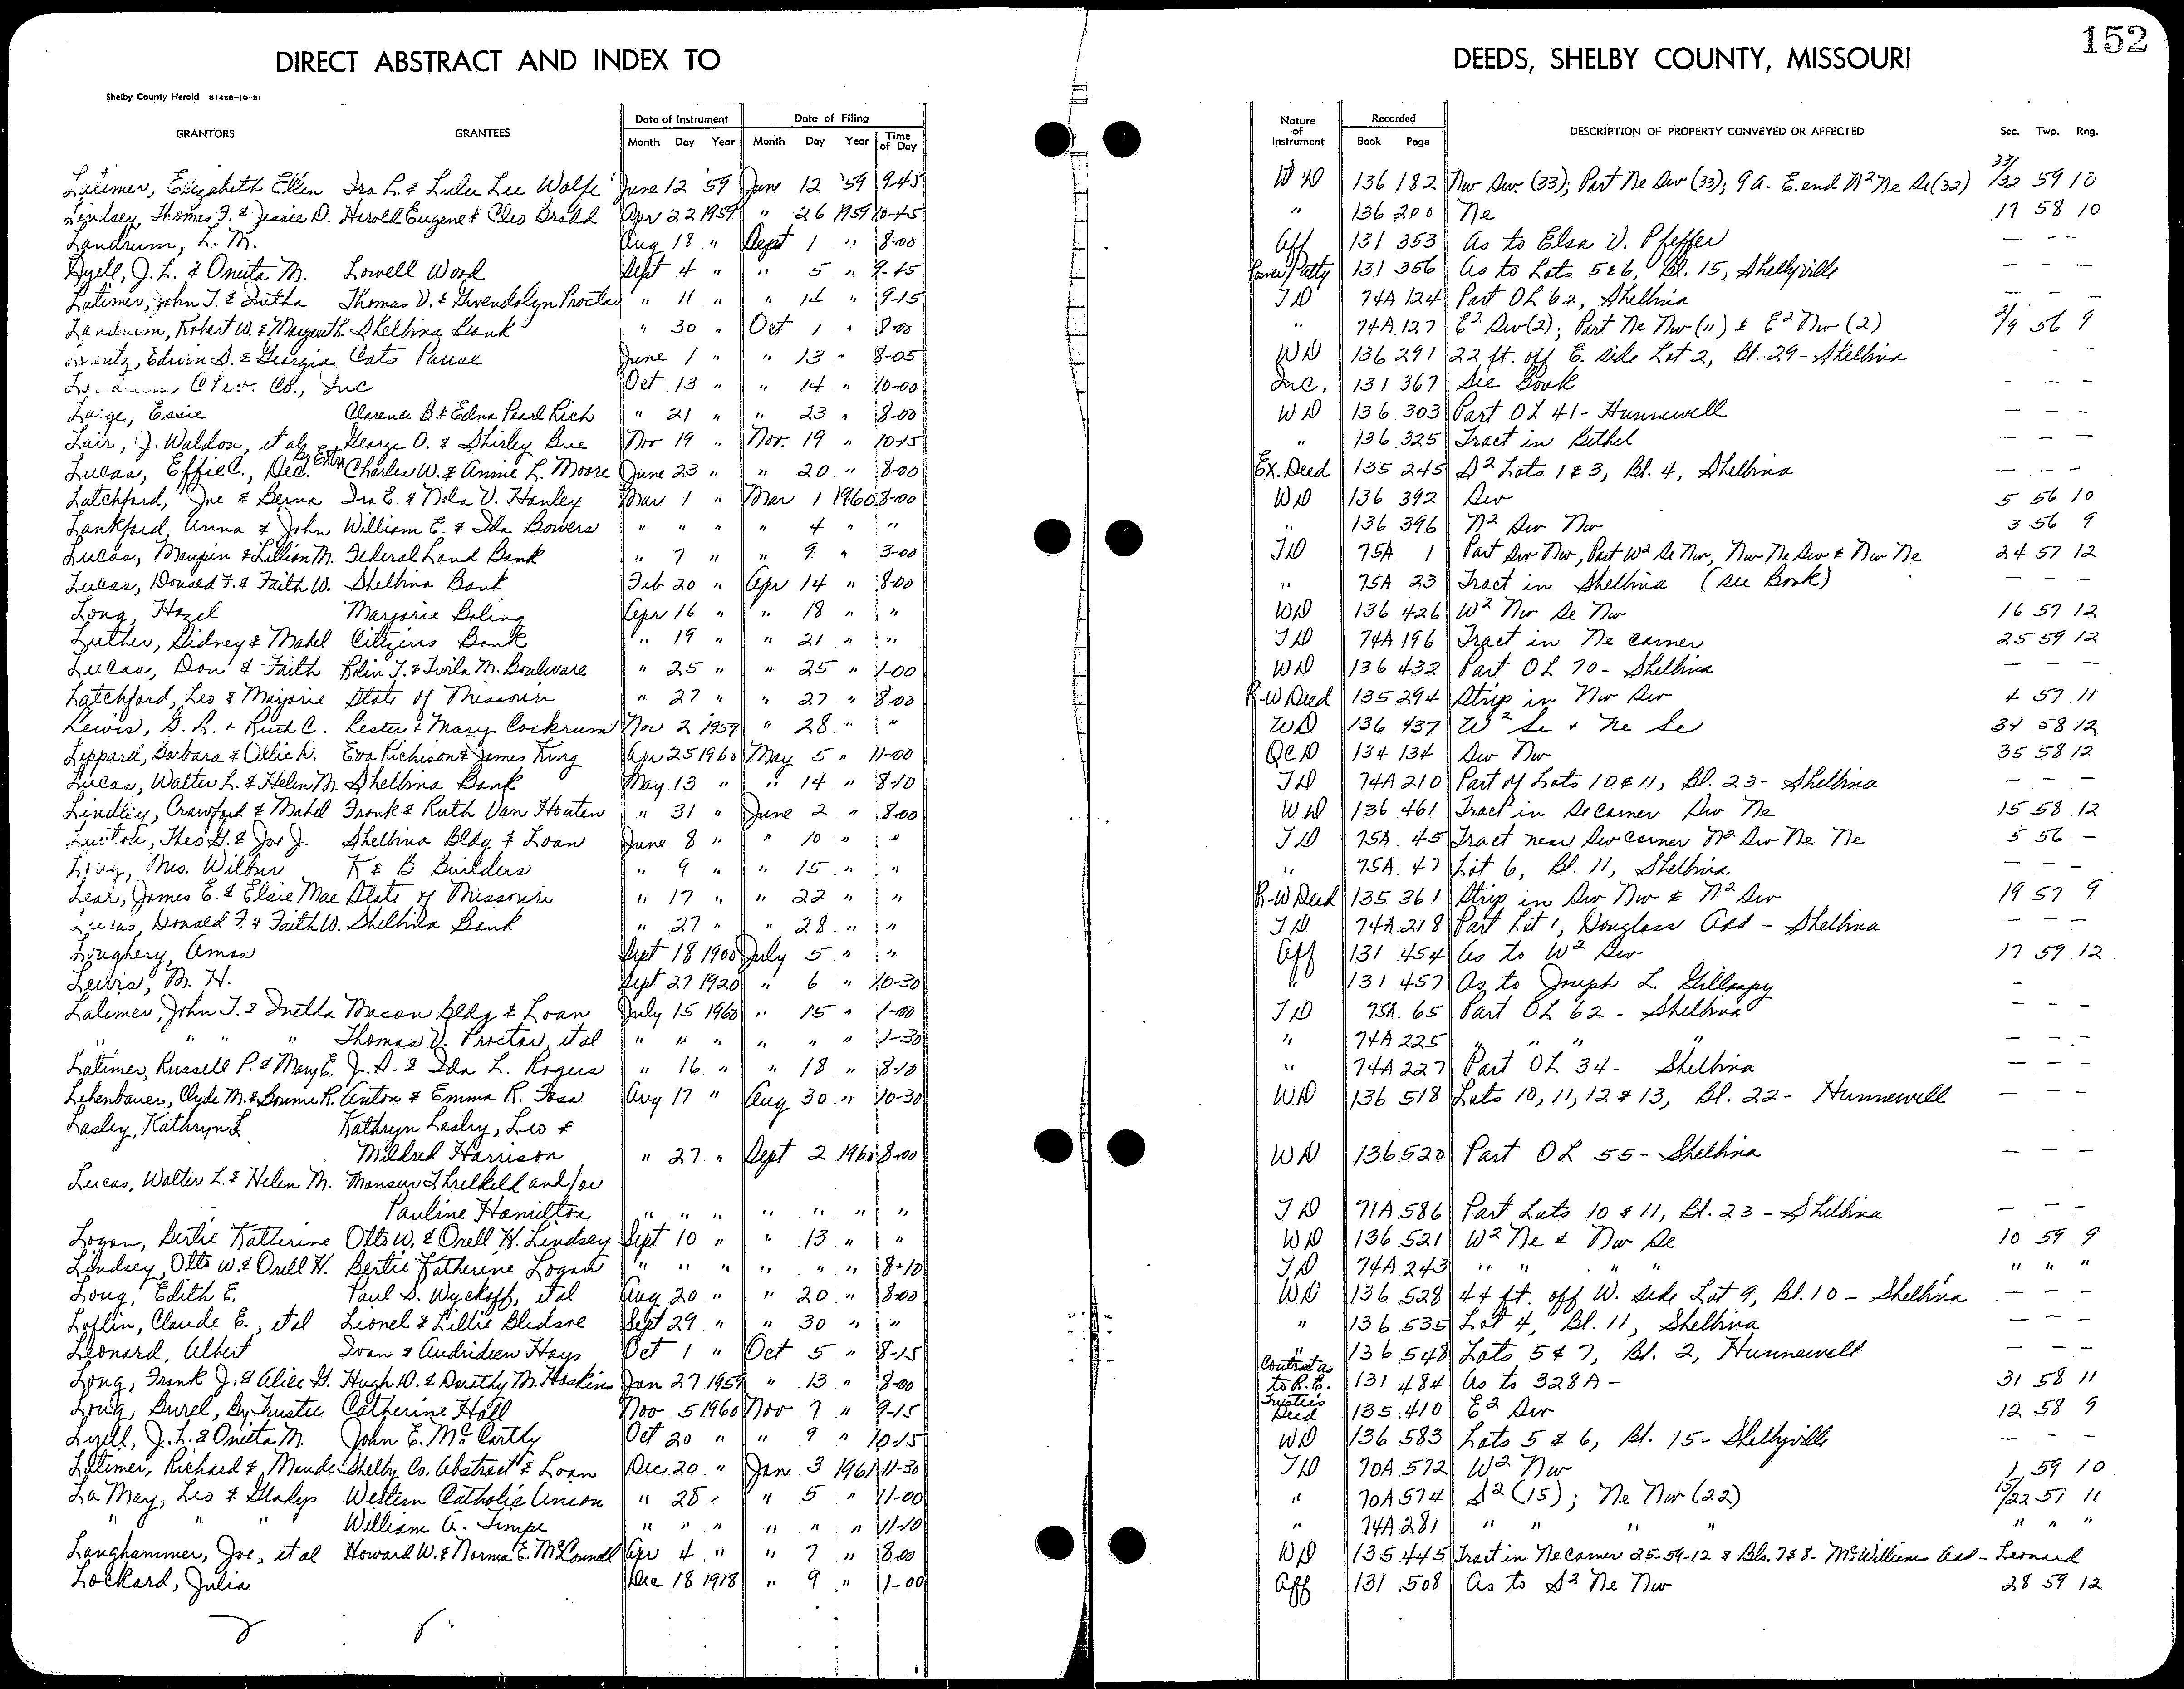 152
DIRECT ABSTRACT AND INDEX TO
DEEDS, SHELBY COUNTY, MISSOURI
Shelby County Herald 51458-10-51
GRANTORS GRANTEES Date of Instrument Month Day Year Date of Filing Month Day Year Time of Day Nature of Instrument Recorded Book Page DESCRIPTION OF PROPERTY CONVEYED OR AFFECTED Sec. Twp. Rng.
Latimer, Elizabeth Ellen Ira L. & Lulu Lee Wolfe June 12 '59 June 12 '59 9-45 WD 136 182 Nw Sw (33); Part Ne Sw (33); 9 a. E. end N² Ne Se (32) 33/32 59 10
Lindsey, Thomas F. & Jessie D. Harold Eugene & Cleo Apr 22 1959 " 26 1959 10-45 " 136 200 Ne 17 58 10
Landrum, L. M. Aug 18 " Sept 1 " 8-00 Aff 131 353 As to Elsa V. Pfeffer — — —
Lyell, J. L. & Oneita M. Lowell Wood Sept 4 " " 5 " 9-45 131 356 As to Lots 5 & 6, Bl. 15, Shelbyville — — —
Latimer, John T. & Inetha Thomas V. & Gwendolyn Proctor " 11 " " 14 " 9-15 TD 74A 124 Part OL 62, Shelbina — — —
Landrum, Robert W. & Shelbina Bank " 30 " Oct 1 " 8-00 " 74A 127 E² Sw (2); Part Ne Nw (11) & E² Nw (2) 56 9
Edwin S. & Georgia Cats Pause June 1 " " 13 " 8-05 WD 136 291 22 ft. off E. side Lot 2, Bl. 29 - Shelbina — — —
Co., Inc Oct 13 " " 14 " 10-00 Inc. 131 367 See Book — — —
Large, Essie Clarence B. & Edna Pearl Rich " 21 " " 23 " 8-00 WD 136 303 Part OL 41 - Hunnewell — — —
Lair, J. Waldon, et als George O. & Shirley Bue Nov 19 " Nov. 19 " 10-15 " 136 325 Tract in Bethel — — —
Lucas, Effie C., Dec. By Extr Charles W. & Annie L. Moore June 23 " " 20 " 8-00 Ex. Deed 135 245 S² Lots 1 & 3, Bl. 4, Shelbina — — —
Latchford, Joe & Berna Ira E. & Nola V. Hanley Mar 1 " Mar 1 1960 8-00 WD 136 392 Sw 5 56 10
Lankford, Anna & John William E. & Ida Bowers " " " " 4 " " " 136 396 N² Sw Nw 3 56 9
Lucas, Maupin & Lillian M. Federal Land Bank " 7 " " 9 " 3-00 TD 75A 1 Part Sw Nw, Part W² Se Nw, Nw Ne Sw & Nw Ne 24 57 12
Lucas, Donald F. & Faith W. Shelbina Bank Feb 20 " Apr 14 " 8-00 " 75A 23 Tract in Shelbina (see Book) — — —
Long, Hazel Marjorie Boling Apr 16 " " 18 " " WD 136 426 W² Nw Se Nw 16 57 12
Luther, Sidney & Mabel Citizens Bank " 19 " " 21 " " TD 74A 196 Tract in Ne corner 25 59 12
Lucas, Don & Faith Rolin T. & Twila M. Boulware " 25 " " 25 " 1-00 WD 136 432 Part OL 70 - Shelbina — — —
Latchford, Leo & Marjorie State of Missouri " 27 " " 27 " 8-00 R-W Deed 135 294 Strip in Nw Sw 4 57 11
Lewis, G. L. + Ruth C. Lester & Mary Cockrum Nov 2 1959 " 28 " " WD 136 437 W² Se + Ne Se 34 58 12
Leppard, Barbara & Ollie D. Eva Richison & James King Apr 25 1960 May 5 " 11-00 QCD 134 134 Sw Nw 35 58 12
Lucas, Walter L. & Helen M. Shelbina Bank May 13 " " 14 " 8-10 TD 74A 210 Part of Lots 10 & 11, Bl. 23 - Shelbina — — —
Lindley, Crawford & Mabel Frank & Ruth Van Houten " 31 " June 2 " 8-00 WD 136 461 Tract in Se Corner Sw Ne 15 58 12
Theo G. & Joe J. Shelbina Bldg & Loan June 8 " " 10 " " TD 75A 45 Tract near Sw corner N² Sw Ne Ne 5 56 —
Long, Mrs. Wilbur K & B Builders " 9 " " 15 " " " 75A 47 Lot 6, Bl. 11, Shelbina — — —
Lear, James E. & Elsie Mae State of Missouri " 17 " " 22 " " R-W Deed 135 361 Strip in Sw Nw & N² Sw 19 57 9
Lucas, Donald F. & Faith W. Shelbina Bank " 27 " " 28 " " TD 74A 218 Part Lot 1, Douglass Add - Shelbina — — —
Loughery, Amos Sept 18 1900 July 5 " " Aff 131 454 As to W² Sw 17 59 12
Lewis, M. H. Sept 27 1920 " 6 " 10-30 " 131 457 As to Joseph L. Gillaspy — — —
Latimer, John T. & Inetha Macon Bldg & Loan July 15 1960 " 15 " 1-00 TD 75A 65 Part OL 62 - Shelbina — — —
" " " Thomas V. Proctor, et al " " " " " " 1-30 " 74A 225 " " " " — — —
Latimer, Russell P. & Mary E. J. A. & Ida L. Rogers " 16 " " 18 " 8-10 " 74A 227 Part OL 34 - Shelbina — — —
Lehenbauer, Clyde M. & Bonnie R. Anton & Emma R. Foss Aug 17 " Aug 30 " 10-30 WD 136 518 Lots 10, 11, 12 & 13, Bl. 22 - Hunnewell — — —
Lasley, Kathryn L Kathryn Lasley, Leo &
Mildred Harrison " 27 " Sept 2 1960 8-00 WD 136 520 Part OL 55 - Shelbina — — —
Lucas, Walter L. & Helen M. Monsur Threlkeld and/or
Pauline Hamilton " " " " " " " TD 71A 586 Part Lots 10 & 11, Bl. 23 - Shelbina — — —
Logan, Bertie Katherine Otto W. & Orell H. Lindsey Sept 10 " " 13 " " WD 136 521 W² Ne & Nw Se 10 59 9
Lindsey, Otto W. & Orell H. Bertie Katherine Logan " " " " " " 8-10 TD 74A 243 " " " " " " "
Long, Edith E. Paul S. Wyckoff, et al Aug 20 " " 20 " 8-00 WD 136 528 44 ft. off W. side Lot 9, Bl. 10 - Shelbina — — —
Loflin, Claude E., et al Lionel & Lillie Bledsoe Sept 29 " " 30 " " " 136 535 Lot 4, Bl. 11, Shelbina — — —
Leonard, Albert Ivan & Audrideen Hays Oct 1 " Oct 5 " 8-15 " 136 548 Lots 5 & 7, Bl. 2, Hunnewell — — —
Long, Frank J. & Alice G. Hugh D. & Dorothy M. Hoskins Jan 27 1959 " 13 " 8-00 Contract as to R.E. 131 484 As to 328 A - 31 58 11
Long, Burel, By Trustee Catherine Hall Nov 5 1960 Nov 7 " 9-15 Trustee's Deed 135 410 E² Sw 12 58 9
Lyell, J. L. & Oneita M. John E. McCarthy Oct 20 " " 9 " 10-15 WD 136 583 Lots 5 & 6, Bl. 15 - Shelbyville — — —
Latimer, Richard & Maude Shelby Co. Abstract & Loan Dec. 20 " Jan 3 1961 11-30 TD 70A 572 W² Nw 1 59 10
La May, Leo & Gladys Western Catholic Union " 28 " " 5 " 11-00 " 70A 574 S² (15); Ne Nw (22) 15/22 57 11
" " " William A. Timpe " " " " " " 11-10 " 74A 281 " " " " " " "
Langhammer, Joe, et al Howard W. & Norma E. McConnell Apr 4 " " 7 " 8-00 WD 135 445 Tract in Ne Corner 25-59-12 & Bls. 7 & 8 - McWilliams Add - Leonard
Lockard, Julia Dec 18 1918 " 9 " 1-00 Aff 131 508 As to S² Ne Nw 28 59 12